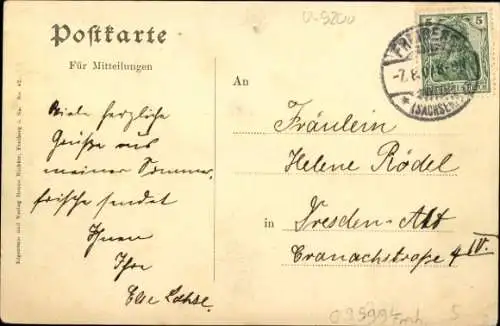 U-9200
Postkarte
Für Mitteilungen
5 5
FREIBERG
(SACHSEN)
An
Viele herzliche
Grüße aus
meiner Sommer-
frische sendet
Ihnen
Ihre
Else
Fräulein
Helene Rödel
in Dresden-Alt
Cranachstraße 4 IV.
Eigentum und Verlag Bruno Richter, Freiberg i. Sa. No. 42.